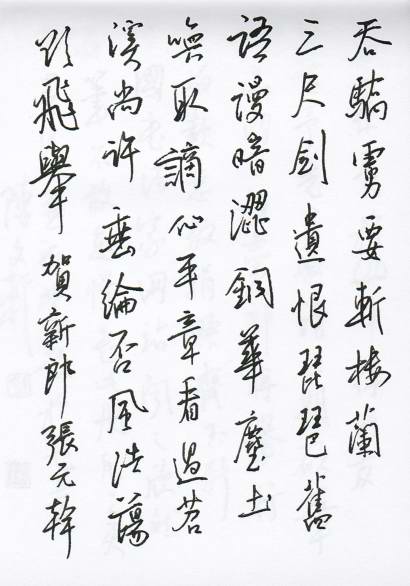 吞驕虜要斬樓蘭
三尺劍遺恨琵琶舊
語謾暗澀銅華塵土
喚取謫仙平章看過苕
溪尚許垂綸否風浩蕩
欲飛舉 賀新郎 張元幹